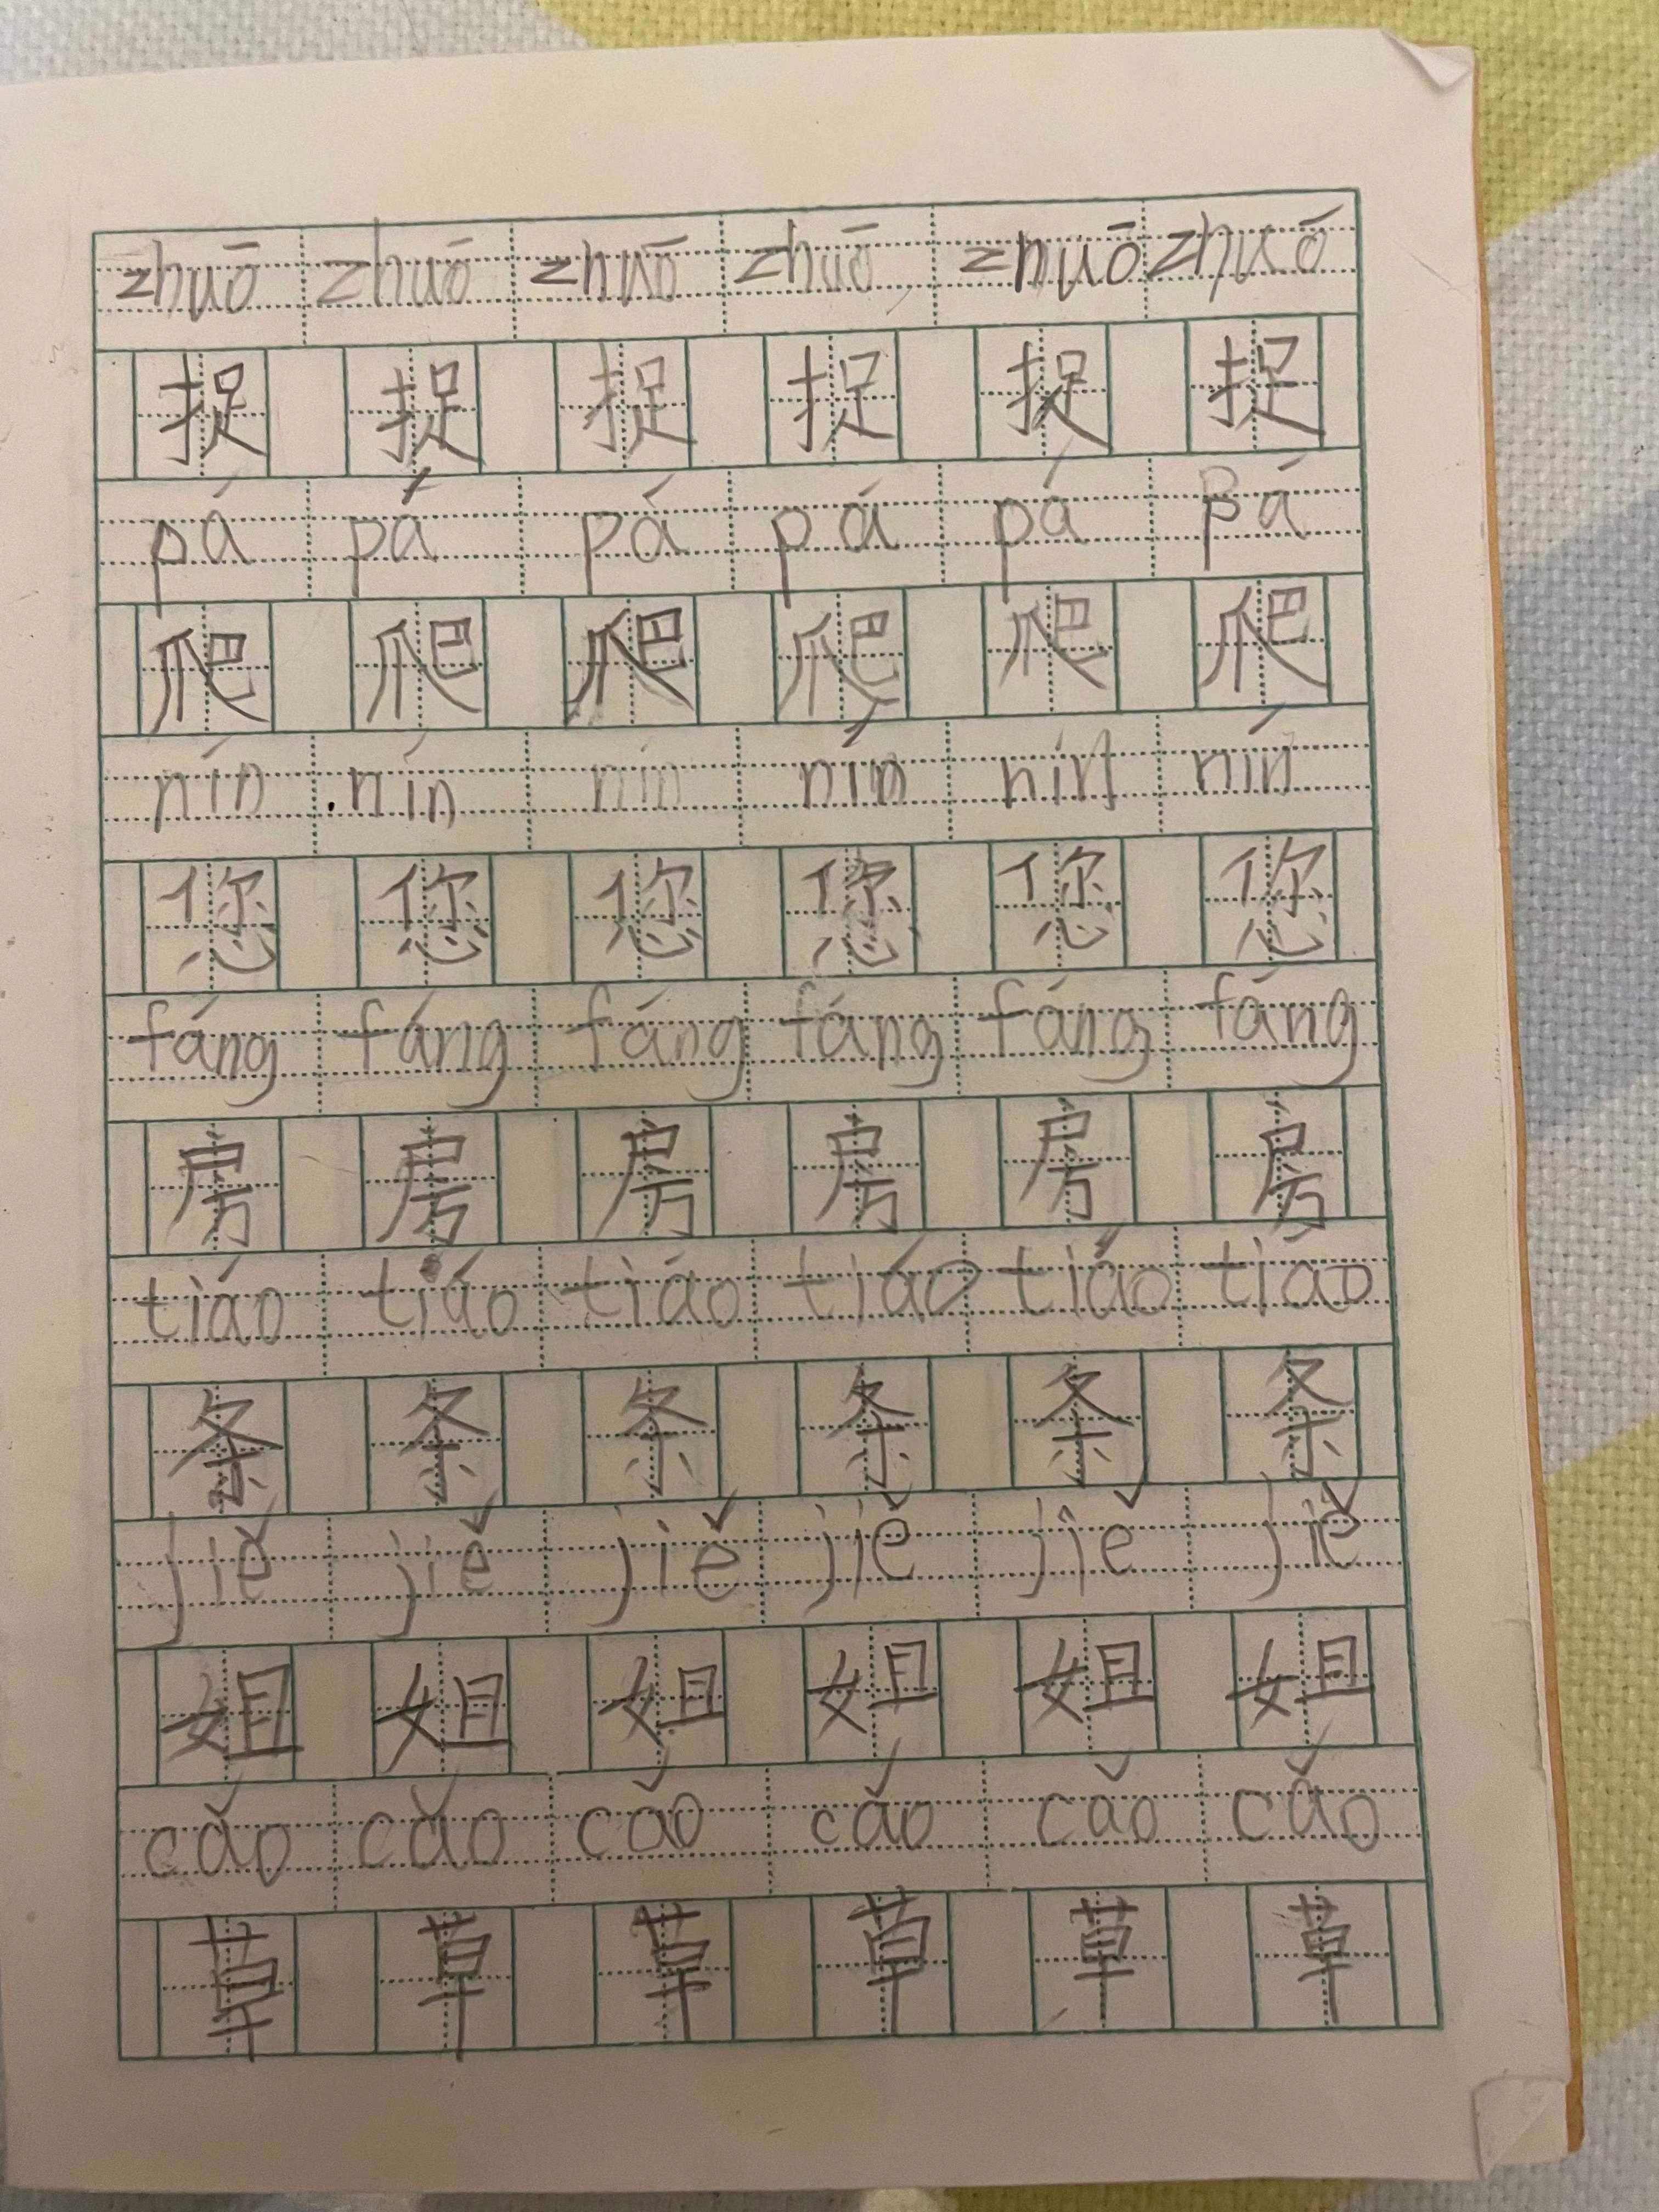 zhuō zhuō zhuō zhuō zhuō zhuō
捉 捉 捉 捉 捉 捉
pá pá pá pá pá pá
爬 爬 爬 爬 爬 爬
nín nín nín nín nín nín
您 您 您 您 您 您
fáng fáng fáng fáng fáng fáng
房 房 房 房 房 房
tiáo tiáo tiáo tiáo tiáo tiáo
条 条 条 条 条 条
jiě jiě jiě jiě jiě jiě
姐 姐 姐 姐 姐 姐
cǎo cǎo cǎo cǎo cǎo cǎo
草 草 草 草 草 草